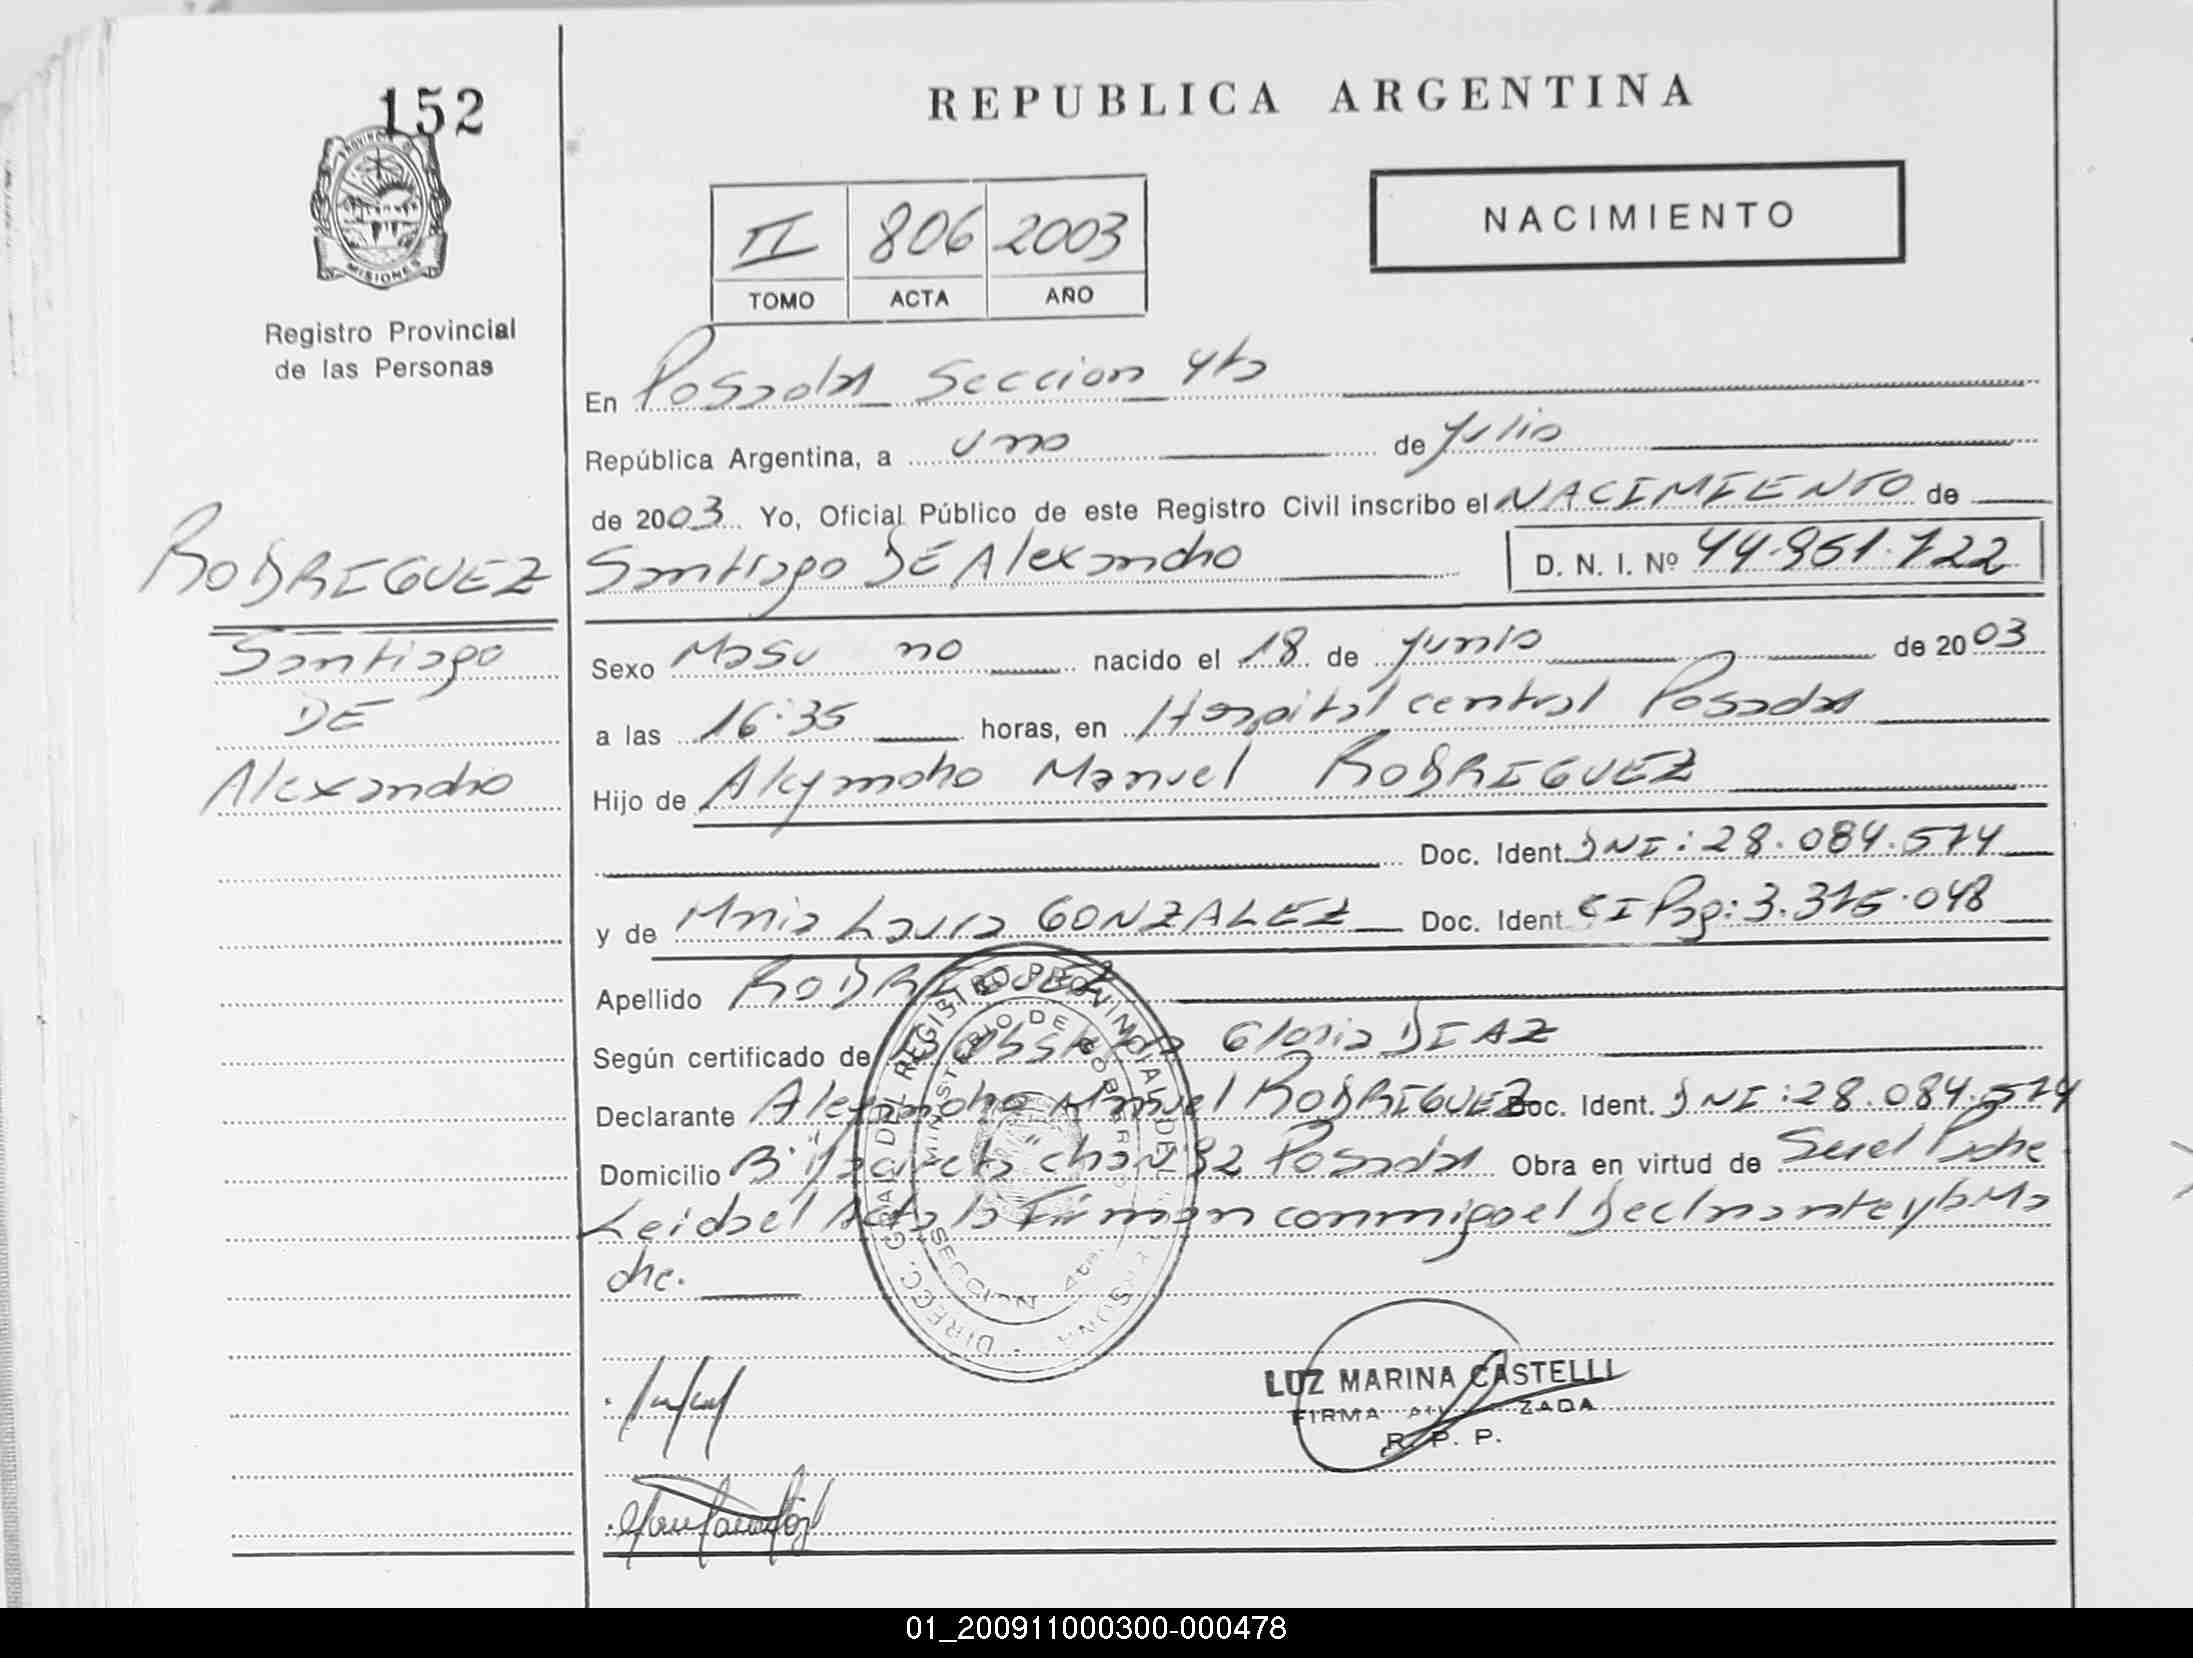 152
PROVINCIA DE
MISIONES
Registro Provincial
de las Personas
REPUBLICA ARGENTINA
NACIMIENTO
II 806 2003
TOMO ACTA AÑO
En Posadas Seccion 4ta
República Argentina, a uno de Julio
de 2003 Yo, Oficial Público de este Registro Civil inscribo el NACIMIENTO de
RODRIGUEZ
Santiago
DE
Alexandro
Santiago DE Alexandro D. N. I. Nº 44.951.722
Sexo Mascu no nacido el 18 de Junio de 2003
a las 16:35 horas, en Hospital central Posadas
Hijo de Manuel RODRIGUEZ
Doc. Ident. DNI: 28.084.574
y de Maria Laura GONZALEZ Doc. Ident. CI Pag: 3.315.048
Apellido RODRIGUEZ
Según certificado de Gloria DIAZ
Declarante Manuel RODRIGUEZ Doc. Ident. DNI: 28.084.574
Domicilio Bº Yacyreta Posadas Obra en virtud de Ser el Padre
Leida el Acta la Firman conmigo el Declarante y la Ma
dre.
DIRECC. GRAL. DEL REGISTRO PROVINCIAL DE
MINISTERIO DE GOBIERNO
SECCION 4ta.
LUZ MARINA CASTELLI
FIRMA ZADA
R. P. P.
01_200911000300-000478